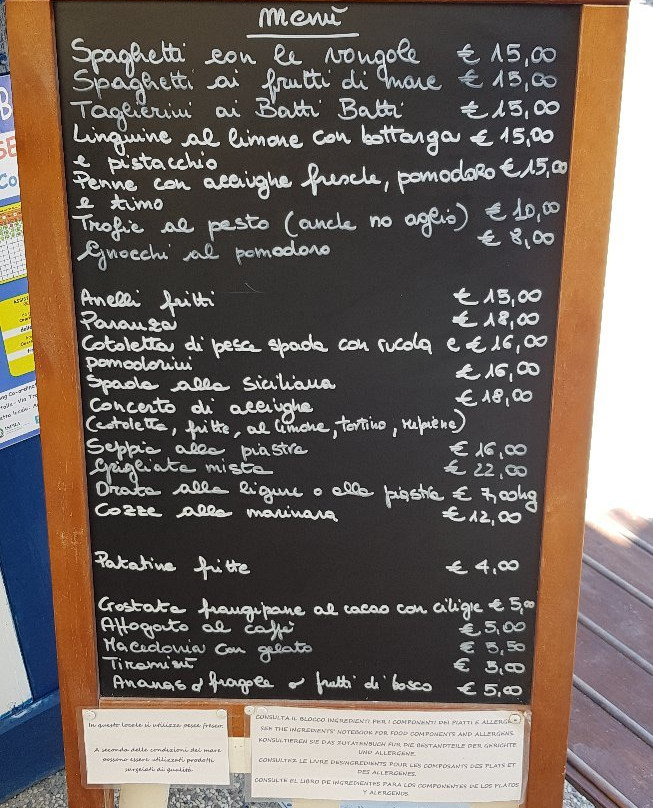 Menù
Spaghetti con le vongole € 15,00
Spaghetti ai frutti di mare € 15,00
Taglierini ai Batti Batti € 15,00
Linguine al limone con bottarga € 15,00
e pistacchio
Penne con acciughe fresche, pomodoro € 15,00
e timo
Trofie al pesto (anche no aglio) € 10,00
Gnocchi al pomodoro € 8,00
Anelli fritti € 15,00
Paranza € 18,00
Cotoletta di pesce spada con rucola e € 16,00
pomodorini
Spada alla siciliana € 16,00
Concerto di acciughe € 18,00
(cotoletta, fritte, al limone, tortino, ripiene)
Seppia alla piastra € 16,00
Grigliata mista € 22,00
Orata alla ligure o alla piastra € 7,00hg
Cozze alla marinara € 12,00
Patatine fritte € 4,00
Crostata frangipane al cacao con ciliegie € 5,00
Affogato al caffè € 5,00
Macedonia con gelato € 5,50
Tiramisù € 5,00
Ananas o fragole o frutti di bosco € 5,00
In questo locale si utilizza pesce fresco.
A seconda delle condizioni del mare
possono essere utilizzati prodotti
surgelati di qualità.
CONSULTA IL BLOCCO INGREDIENTI PER I COMPONENTI DEI PIATTI E ALLERGENI
SEE THE INGREDIENTS' NOTEBOOK FOR FOOD COMPONENTS AND ALLERGENS.
KONSULTIEREN SIE DAS ZUTATENBUCH FÜR DIE BESTANDTEILE DER GERICHTE
UND ALLERGENE.
CONSULTEZ LE LIVRE D'INGREDIENTS POUR LES COMPOSANTS DES PLATS ET
DES ALLERGENES.
CONSULTE EL LIBRO DE INGREDIENTES PARA LOS COMPONENTES DE LOS PLATOS
Y ALERGENOS.